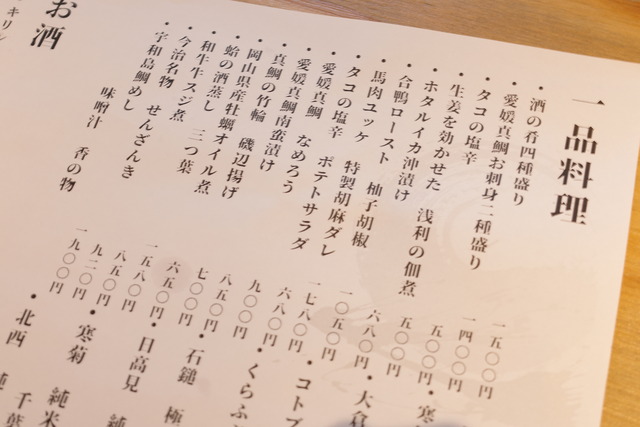 一品料理
・酒の肴四種盛り 一五〇〇円
・愛媛真鯛お刺身二種盛り 一四〇〇円
・タコの塩辛 五〇〇円
・生姜を効かせた 浅利の佃煮 五〇〇円
・ホタルイカ沖漬け 六八〇円
・合鴨ロースト 柚子胡椒 一〇五〇円
・馬肉ユッケ 特製胡麻ダレ 一七八〇円
・タコの塩辛 ポテトサラダ 六八〇円
・愛媛真鯛 なめろう 九〇〇円
・愛媛真鯛南蛮漬け 八五〇円
・真鯛の竹輪 磯辺揚げ 七〇〇円
・岡山県産牡蠣オイル煮 六五〇円
・蛤の酒蒸し 三つ葉 一五八〇円
・和牛牛スジ煮 八五〇円
・今治名物 せんざんき 九二〇円
・宇和島鯛めし 味噌汁 香の物 一九〇〇円
お酒
キリン
・寒
・大倉
・コトブ
・くらふ
・石鎚
・日高見 純
・寒菊 純米
・北西 千葉